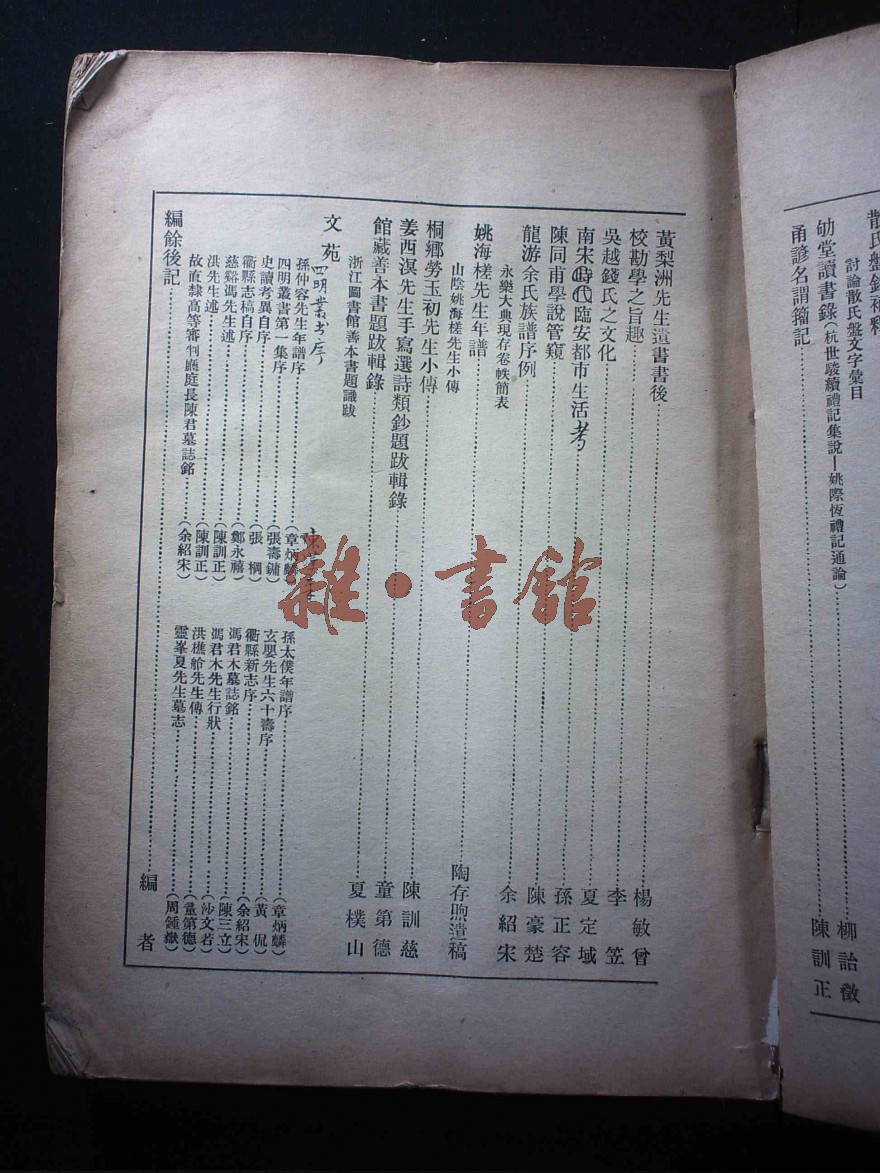 散氏盤銘補釋
討論散氏盤文字彙目
劬堂讀書錄(杭世駿續禮記集說—姚際恆禮記通論)………柳詒徵
甬諺名謂籀記………陳訓正
黃梨洲先生遺書書後………楊敏曾
校勘學之旨趣………李笠
吳越錢氏之文化………夏定域
南宋時代臨安都市生活考………孫正容
陳同甫學說管窺………陳豪楚
龍游余氏族譜序例………余紹宋
永樂大典現存卷帙簡表
姚海槎先生年譜………陶存煦遺稿
山陰姚海槎先生小傳
桐鄉勞玉初先生小傳………陳訓慈
姜西溟先生手寫選詩類鈔題跋輯錄………童第德
館藏善本書題跋輯錄………夏樸山
浙江圖書館善本書題識跋
文苑
四明叢書序
孫仲容先生年譜序………(章炳麟)
孫太僕年譜序………(章炳麟)
四明叢書第一集序………(張壽鏞)
玄嬰先生六十壽序………(黃侃)
史讀考異自序………(張棡)
衢縣新志序………(余紹宋)
衢縣志稿自序………(鄭永禧)
馮君木墓誌銘………(陳三立)
慈谿馮先生述………(陳訓正)
馮君木先生行狀………(沙文若)
洪先生述………(陳訓正)
洪樵舲先生傳………(董第德)
故直隸高等審判廳庭長陳君墓誌銘………(余紹宋)
靈峯夏先生墓志………(周鍾嶽)
編餘後記………編者
雜·書館